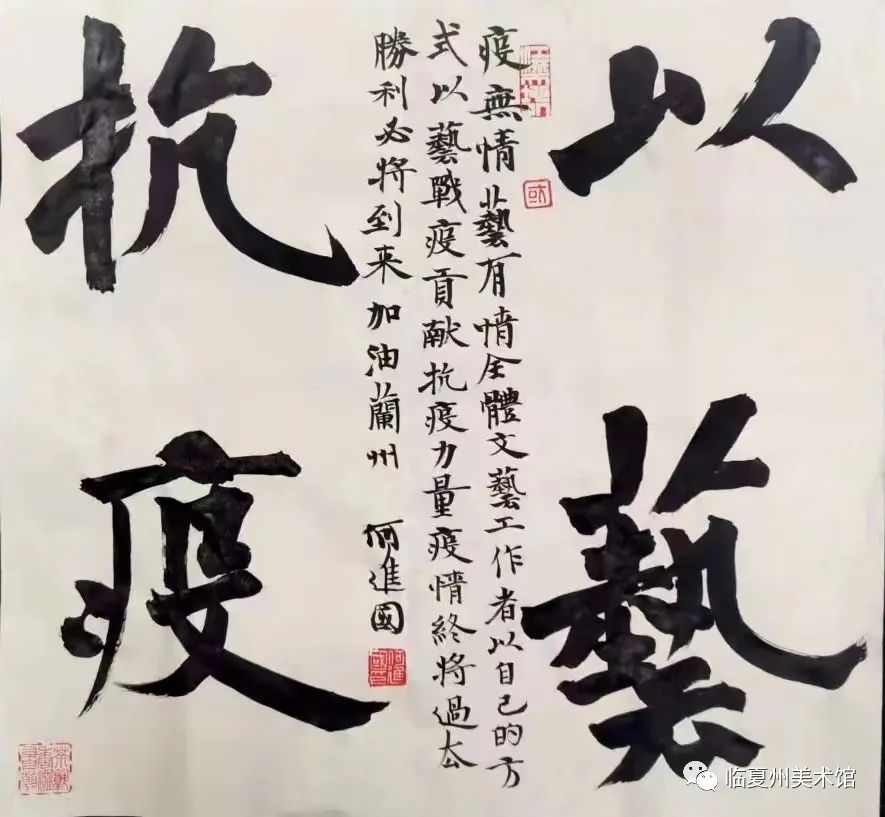 以藝
疫無情藝有情全體文藝工作者以自己的方
式以藝戰疫貢献抗疫力量疫情終將過去
勝利必將到来加油蘭州 何進國
抗疫
何進國印
临夏州美术馆